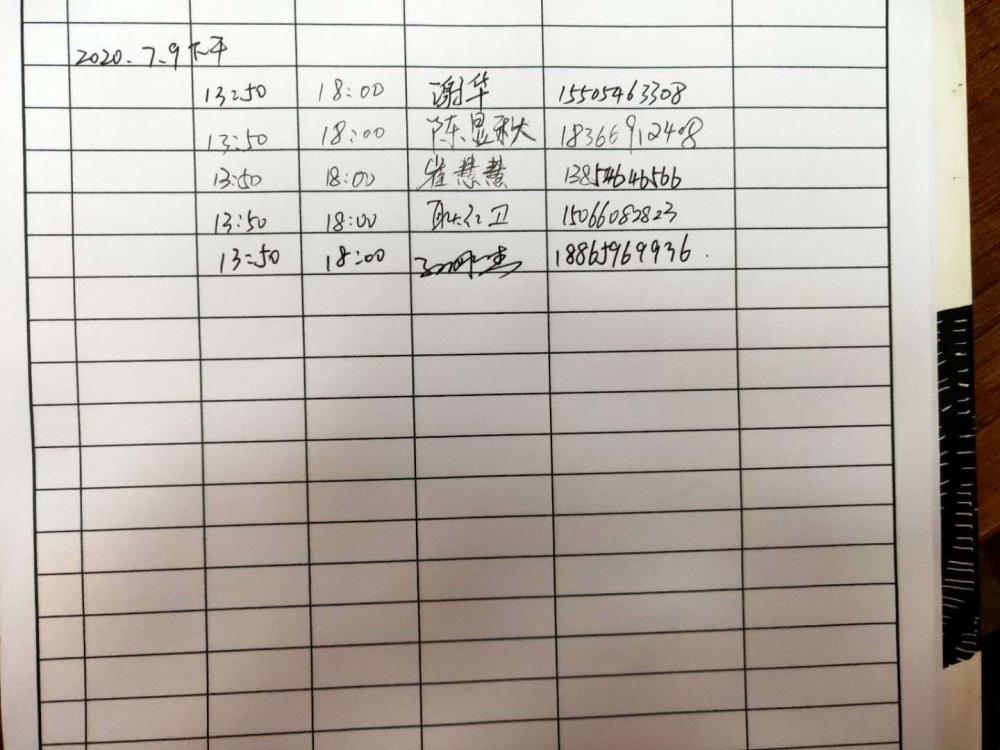 2020.7.9下午
13:50 18:00 谢华 15505463308
13:50 18:00 陈显秋 18366912408
13:50 18:00 崔慧慧 13854646566
13:50 18:00 耿红卫 15066082823
13:50 18:00 18865969936.